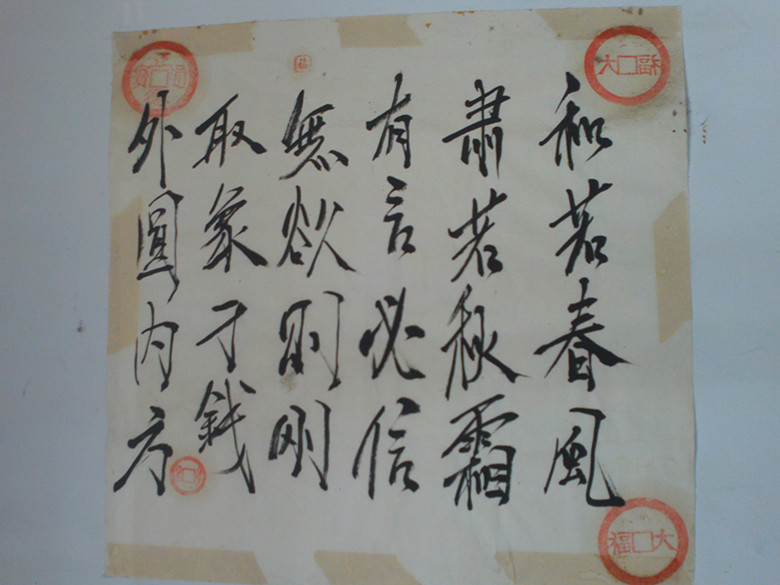 和若春風
肅若秋霜
有言必信
無欲則剛
取象于錢
外圓内方
大福
大福